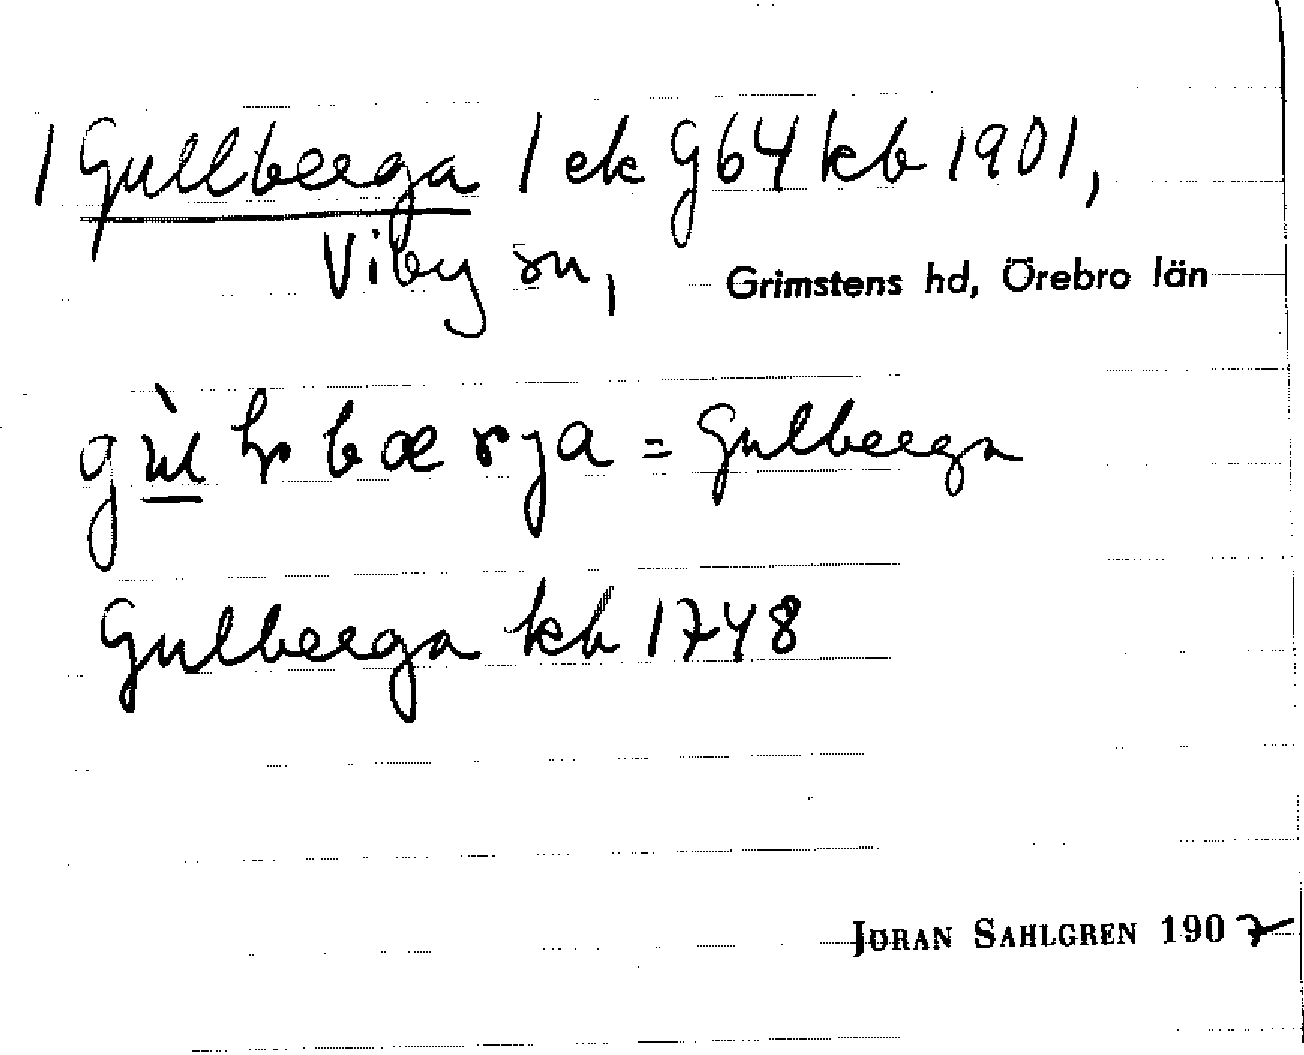 | Gullberga | ek G64 kb 1901,
Viby sn, Grimstens hd, Örebro län
= Gulberga
Gulberga kb 1748
JÖRAN SAHLGREN 1907